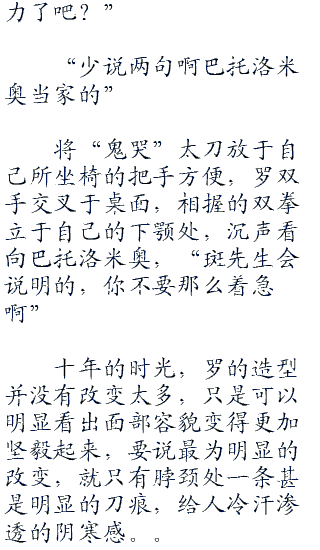 力了吧？”
“少说两句啊巴托洛米
奥当家的”
将“鬼哭”太刀放于自
己所坐椅的把手方便，罗双
手交叉于桌面，相握的双拳
立于自己的下颚处，沉声看
向巴托洛米奥，“斑先生会
说明的，你不要那么着急
啊”
十年的时光，罗的造型
并没有改变太多，只是可以
明显看出面部容貌变得更加
坚毅起来，要说最为明显的
改变，就只有脖颈处一条甚
是明显的刀痕，给人冷汗渗
透的阴寒感。。